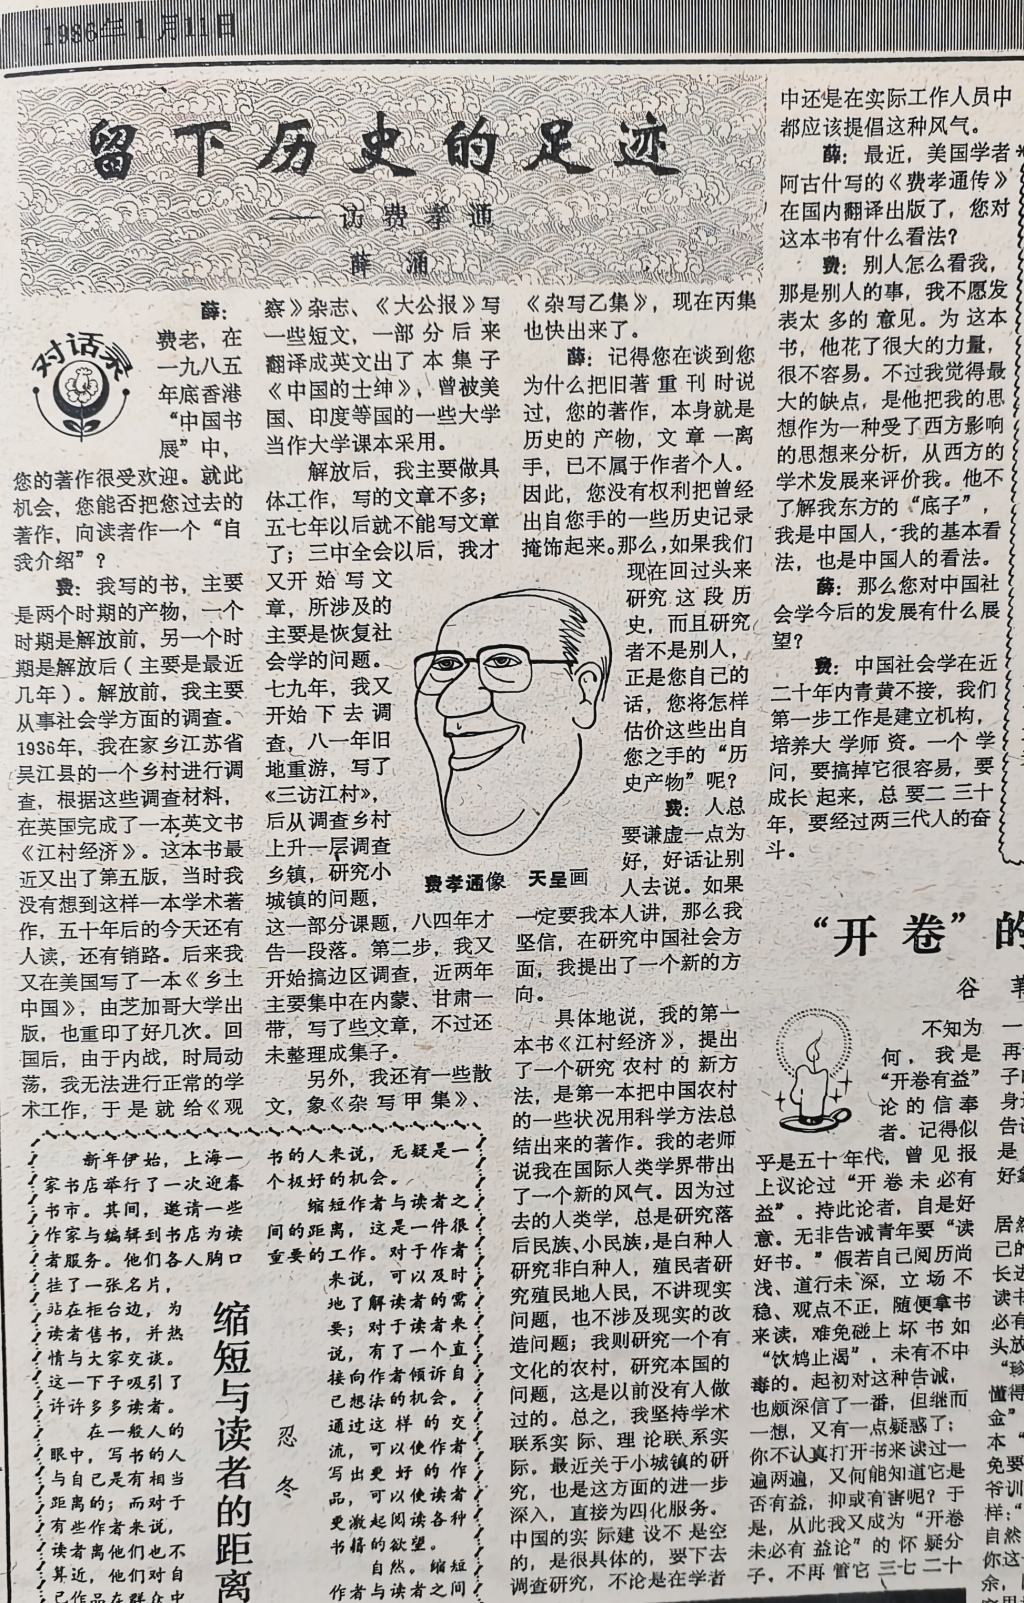 1986年1月11日
留下历史的足迹
——访费孝通
薛涌
对话录
薛：
费老，在
一九八五
年底香港
“中国书
展”中，
您的著作很受欢迎。就此
机会，您能否把您过去的
著作，向读者作一个“自
我介绍”？
费：我写的书，主要
是两个时期的产物，一个
时期是解放前，另一个时
期是解放后（主要是最近
几年）。解放前，我主要
从事社会学方面的调查。
1936年，我在家乡江苏省
吴江县的一个乡村进行调
查，根据这些调查材料，
在英国完成了一本英文书
《江村经济》。这本书最
近又出了第五版，当时我
没有想到这样一本学术著
作，五十年后的今天还有
人读，还有销路。后来我
又在美国写了一本《乡土
中国》，由芝加哥大学出
版，也重印了好几次。回
国后，由于内战，时局动
荡，我无法进行正常的学
术工作，于是就给《观
察》杂志、《大公报》写
一些短文，一部分后来
翻译成英文出了本集子
《中国的士绅》，曾被美
国、印度等国的一些大学
当作大学课本采用。
解放后，我主要做具
体工作，写的文章不多；
五七年以后就不能写文章
了；三中全会以后，我才
又开始写文
章，所涉及的
主要是恢复社
会学的问题。
七九年，我又
开始下去调
查，八一年旧
地重游，写了
《三访江村》，
后从调查乡村
上升一层调查
乡镇，研究小
城镇的问题，
这一部分课题，八四年才
告一段落。第二步，我又
开始搞边区调查，近两年
主要集中在内蒙、甘肃一
带，写了些文章，不过还
未整理成集子。
另外，我还有一些散
文，象《杂写甲集》、
《杂写乙集》，现在丙集
也快出来了。
薛：记得您在谈到您
为什么把旧著重刊时说
过，您的著作，本身就是
历史的产物，文章一离
手，已不属于作者个人。
因此，您没有权利把曾经
出自您手的一些历史记录
掩饰起来。那么，如果我们
现在回过头来
研究这段历
史，而且研究
者不是别人，
正是您自己的
话，您将怎样
估价这些出自
您之手的“历
史产物”呢？
费：人总
要谦虚一点为
好，好话让别
人去说。如果
一定要我本人讲，那么我
坚信，在研究中国社会方
面，我提出了一个新的方
向。
具体地说，我的第一
本书《江村经济》，提出
了一个研究农村的新方
法，是第一本把中国农村
的一些状况用科学方法总
结出来的著作。我的老师
说我在国际人类学界带出
了一个新的风气。因为过
去的人类学，总是研究落
后民族、小民族，是白种人
研究非白种人，殖民者研
究殖民地人民，不讲现实
问题，也不涉及现实的改
造问题；我则研究一个有
文化的农村，研究本国的
问题，这是以前没有人做
过的。总之，我坚持学术
联系实际、理论联系实
际。最近关于小城镇的研
究，也是这方面的进一步
深入，直接为四化服务。
中国的实际建设不是空
的，是很具体的，要下去
调查研究，不论是在学者
中还是在实际工作人员中
都应该提倡这种风气。
薛：最近，美国学者
阿古什写的《费孝通传》
在国内翻译出版了，您对
这本书有什么看法？
费：别人怎么看我，
那是别人的事，我不愿发
表太多的意见。为这本
书，他花了很大的力量，
很不容易。不过我觉得最
大的缺点，是他把我的思
想作为一种受了西方影响
的思想来分析，从西方的
学术发展来评价我。他不
了解我东方的“底子”，
我是中国人，我的基本看
法，也是中国人的看法。
薛：那么您对中国社
会学今后的发展有什么展
望？
费：中国社会学在近
二十年内青黄不接，我们
第一步工作是建立机构，
培养大学师资。一个学
问，要搞掉它很容易，要
成长起来，总要二三十
年，要经过两三代人的奋
斗。
费孝通像 天呈画
新年伊始，上海一
家书店举行了一次迎春
书市。其间，邀请一些
作家与编辑到书店为读
者服务。他们各人胸口
挂了一张名片，
站在柜台边，为
读者售书，并热
情与大家交谈。
这一下子吸引了
许许多多读者。
在一般人的
眼中，写书的人
与自己是有相当
距离的；而对于
有些作者来说，
读者离他们也不
算近，他们对自
己作品在群众中
缩短与读者的距离
忍冬
书的人来说，无疑是一
个极好的机会。
缩短作者与读者之
间的距离，这是一件很
重要的工作。对于作者
来说，可以及时
地了解读者的需
要；对于读者来
说，有了一个直
接向作者倾诉自
己想法的机会。
通过这样的交
流，可以使作者
写出更好的作
品，可以使读者
更激起阅读各种
书籍的欲望。
自然。缩短
作者与读者之间
“开卷”的
谷
不知为
何，我是
“开卷有益”
论的信奉
者。记得似
乎是五十年代，曾见报
上议论过“开卷未必有
益”。持此论者，自是好
意。无非告诫青年要“读
好书。”假若自己阅历尚
浅、道行未深，立场不
稳、观点不正，随便拿书
来读，难免碰上坏书如
“饮鸩止渴”，未有不中
毒的。起初对这种告诫，
也颇深信了一番，但继而
一想，又有一点疑惑了；
你不认真打开书来读过一
遍两遍，又何能知道它是
否有益，抑或有害呢？于
是，从此我又成为“开卷
未必有益论”的怀疑分
子，不再管它三七二十
一
再
子
身
告
是
好
居然
己的
长进
读书
必有
头放
“珍
懂得
金”
本“
免要
爷训
样：“
自然
你这
余，